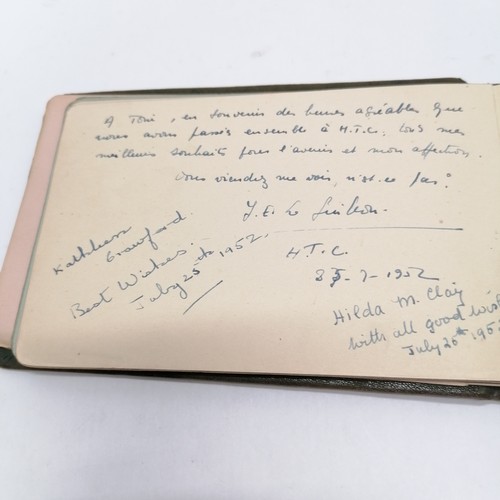 A Toni, en souvenir des heures agréables que
nous avons passés ensemble à H.T.C., tous mes
meilleurs souhaits pour l'avenir et mon affection.
Vous viendrez me voir, n'est-ce pas?
H.T.C.
7-1952
Kathleen
Crawford.
Best Wishes.
July 25th 1952.
Hilda M. Clay
with all good
July 26th 195